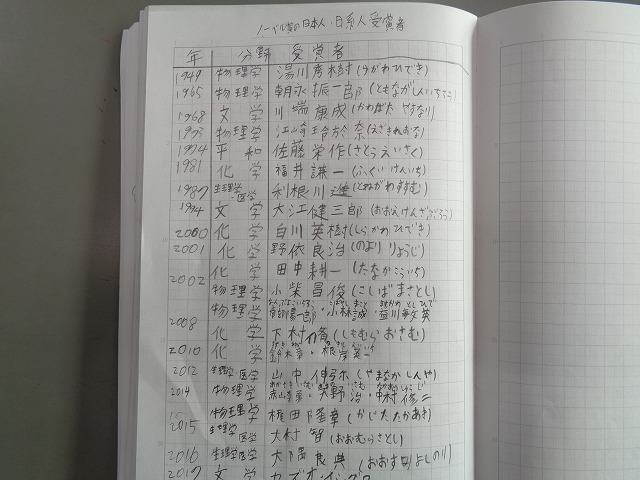 ノーベル賞の日本人・日系人受賞者
年 分野 受賞者
1949 物理学 湯川秀樹(ゆかわひでき)
1965 物理学 朝永振一郎(ともながしんいちろう)
1968 文学 川端康成(かわばた やすなり)
1973 物理学 江崎玲於奈(えざきれおな)
1974 平和 佐藤栄作(さとうえいさく)
1981 化学 福井謙一(ふくい けんいち)
1987 生理学・医学 利根川進(とねがわすすむ)
1994 文学 大江健三郎(おおえけんざぶろう)
2000 化学 白川英樹(しらかわひでき)
2001 化学 野依良治(のより りょうじ)
2002 化学 田中耕一(たなかこういち)
物理学 小柴昌俊(こしばまさとし)
2008 物理学 南部陽一郎・小林誠・益川敏英
化学 下村脩(しもむら おさむ)
2010 化学 鈴木章・根岸英一
2012 生理学・医学 山中伸弥(やまなかしんや)
2014 物理学 赤崎勇・天野浩・中村修二
2015 物理学 梶田隆章(かじたたかあき)
生理学・医学 大村智(おおむらさとし)
2016 生理学・医学 大隅良典(おおすみよしのり)
2017 文学 カズオ・イシグロ